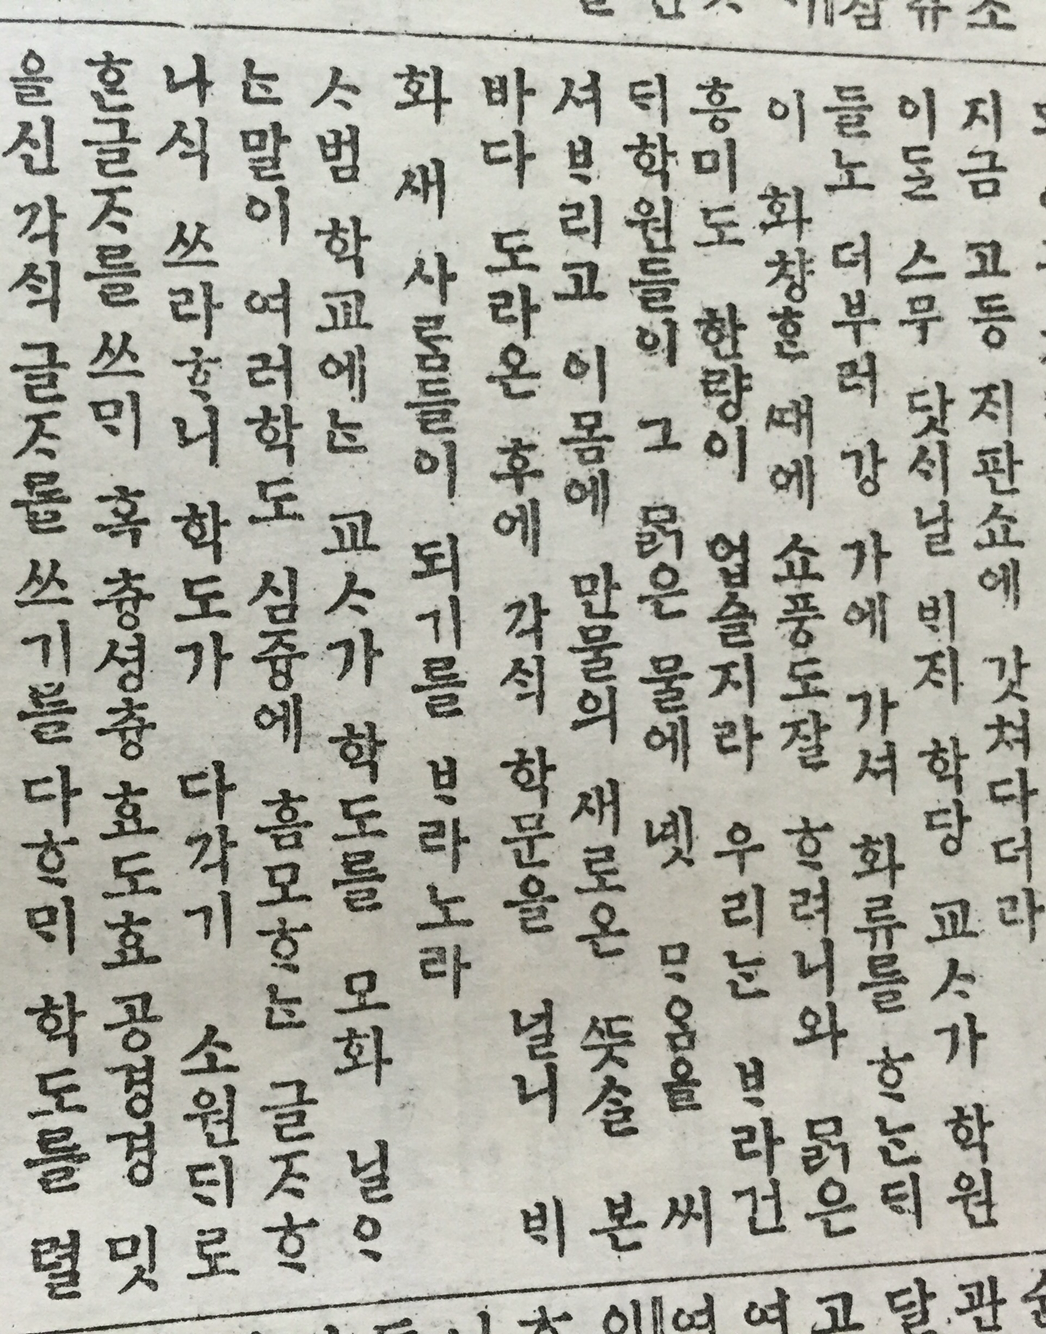 지금 고등 ᄌᆡ판쇼에 갓쳐다더라
이ᄃᆞᆯ 스무 닷ᄉᆡ날 ᄇᆡᄌᆡ 학당 교ᄉᆞ가 학원
들노 더부러 강 가에 가셔 화류를 ᄒᆞᄂᆞᆫᄃᆡ
이 화챵ᄒᆞᆫ ᄯᅢ에 쇼풍도잘 ᄒᆞ려니와 ᄆᆞᆰ은
흥미도 한량이 업슬지라 우리ᄂᆞᆫ ᄇᆞ라건
ᄃᆡ학원들이 그 ᄆᆞᆰ은 물에 녯 ᄆᆞ음을 씨
셔ᄇᆞ리고 이몸에 만물의 새로온 ᄯᅳᆺ슬 본
바다 도라온 후에 각ᄉᆡᆨ 학문을 널니 ᄇᆡ
화 새 사ᄅᆞᆷ들이 되기를 ᄇᆞ라노라
ᄉᆞ범 학교에ᄂᆞᆫ 교ᄉᆞ가 학도를 모화 닐ᄋᆞ
ᄂᆞᆫ말이 여러학도 심즁에 흠모ᄒᆞᄂᆞᆫ 글ᄌᆞᄒᆞ
나식 쓰라ᄒᆞ니 학도가 다각기 소원ᄃᆡ로
ᄒᆞᆫ글ᄌᆞ를 쓰ᄆᆡ 혹 츙셩츙 효도효 공경경 밋
을신 각ᄉᆡᆨ글ᄌᆞ를 쓰기를 다ᄒᆞᄆᆡ 학도를 렬